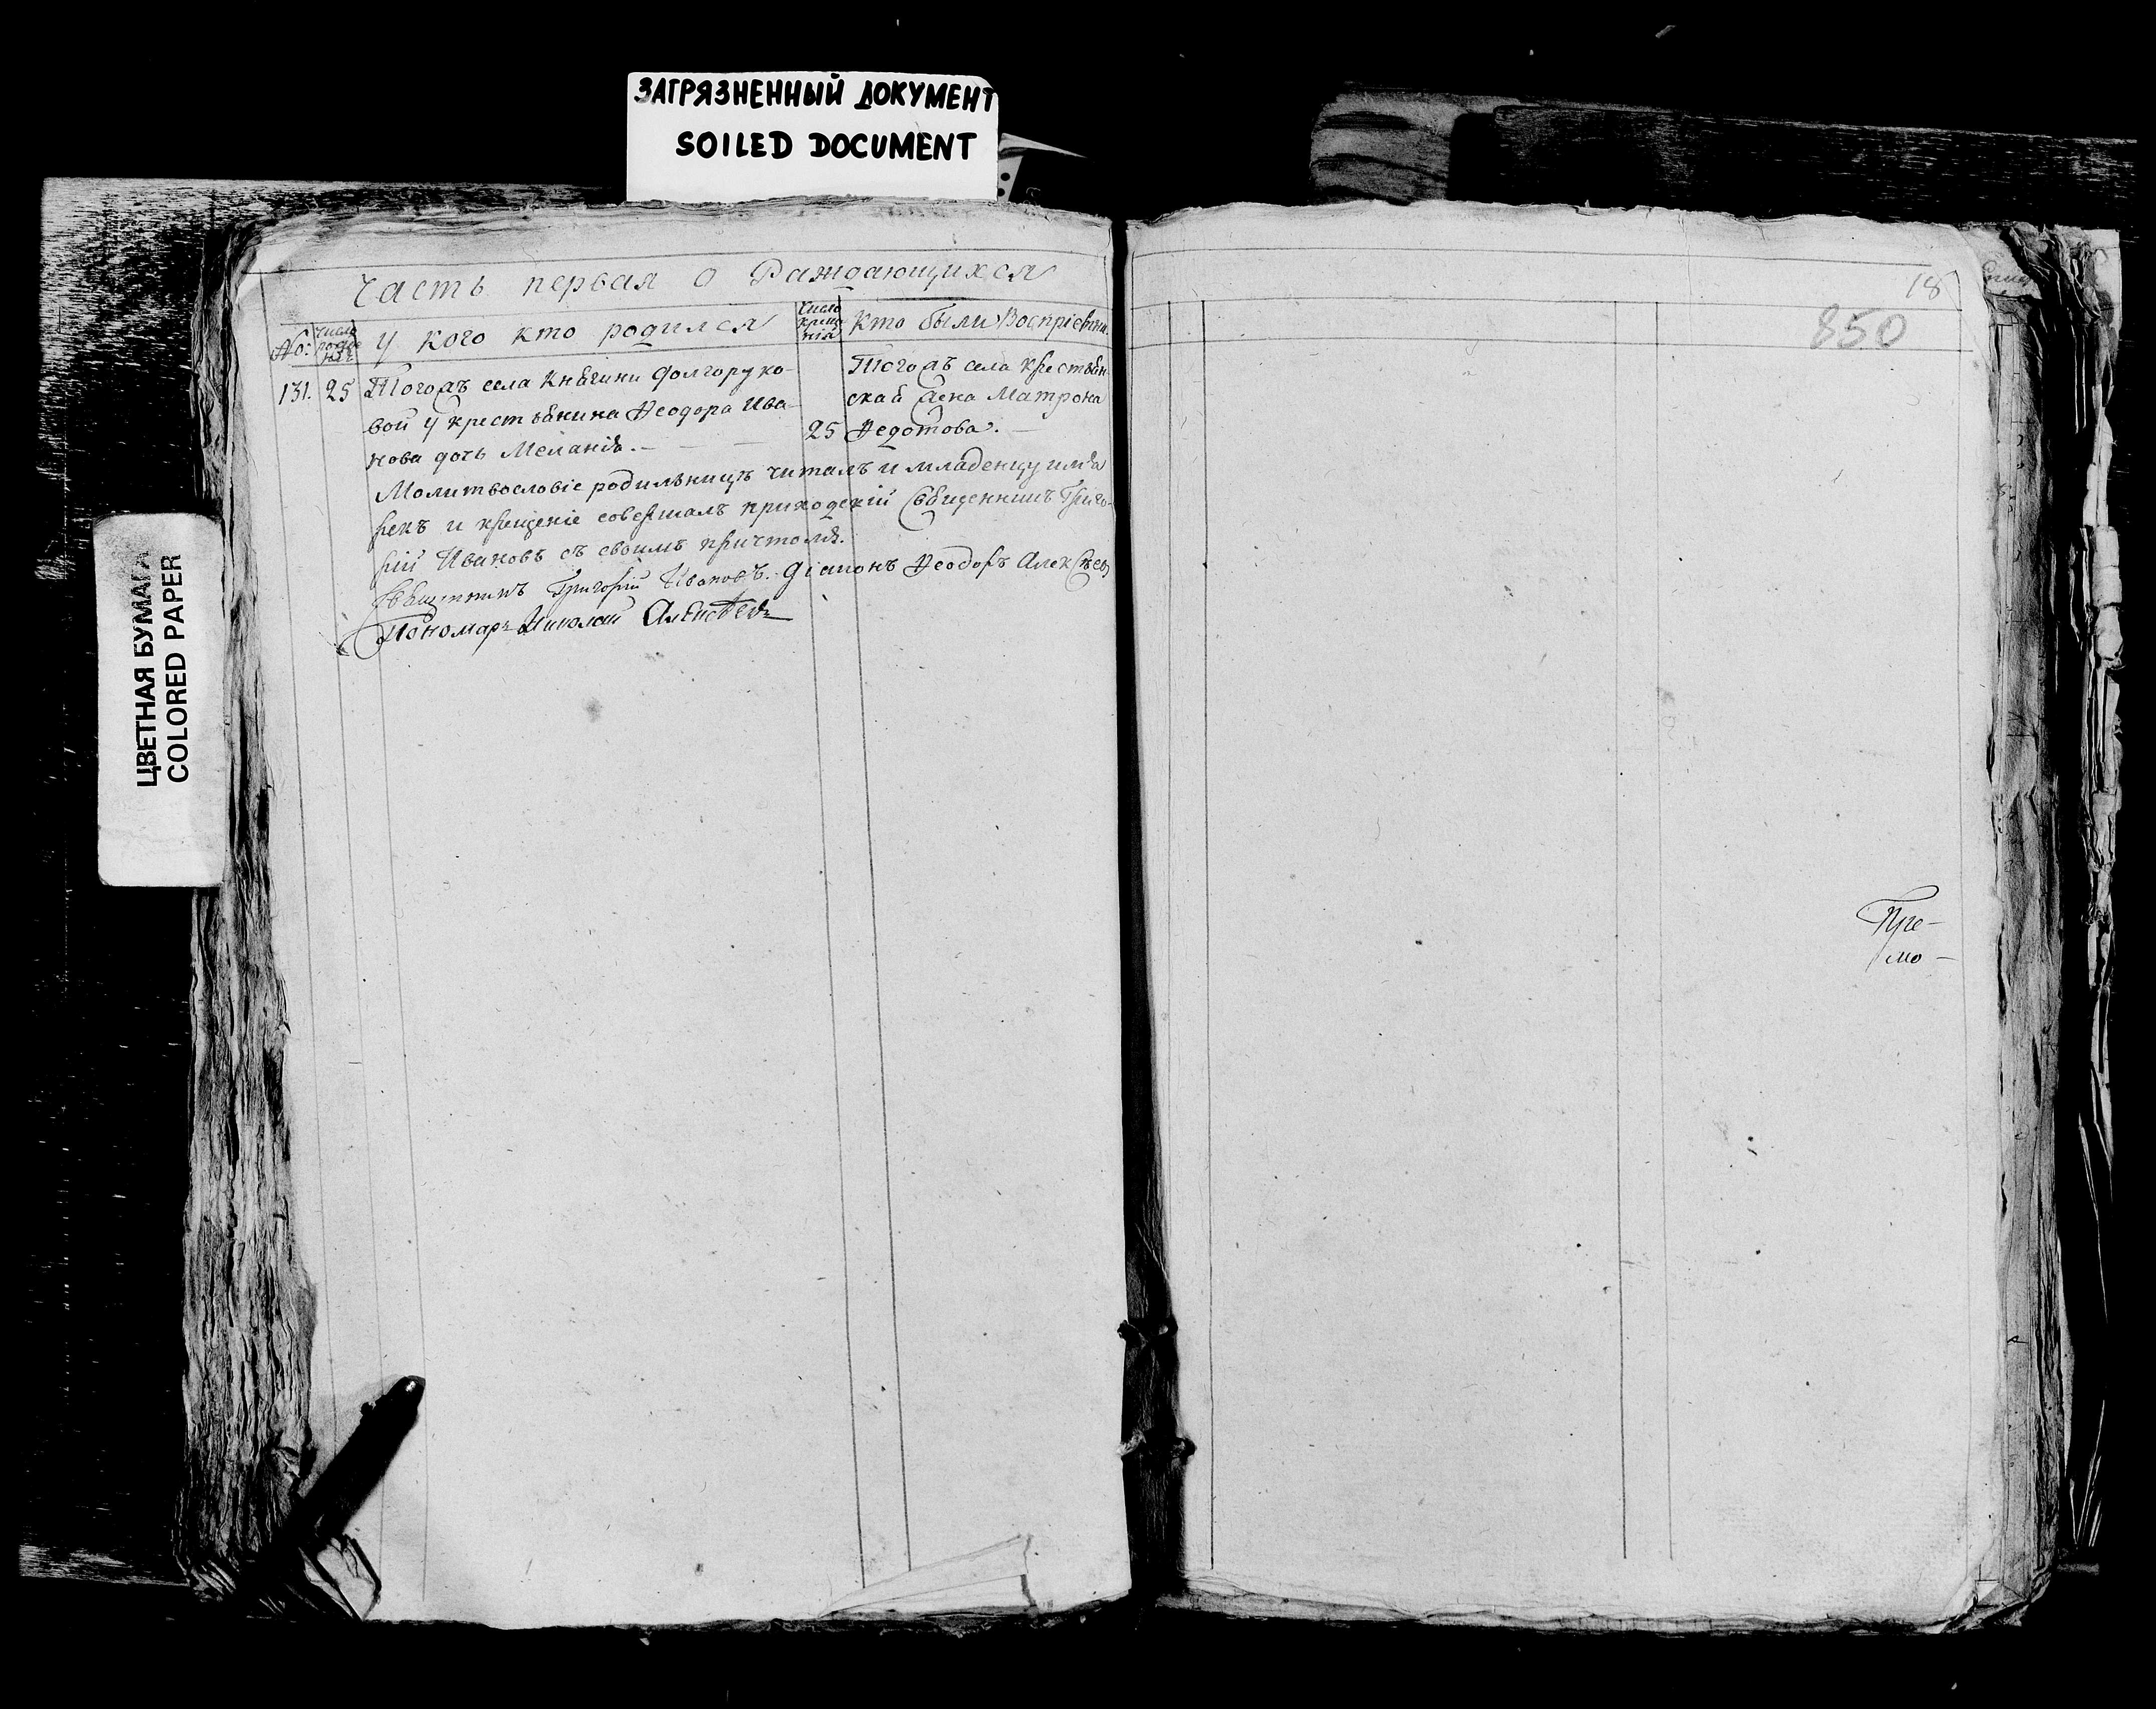 ЗАГРЯЗНЕННЫЙ ДОКУМЕНТ
SOILED DOCUMENT
ЦВЕТНАЯ БУМАГА
COLORED PAPER
Часть первая о Раждающихся
№: число рожде нія у кого кто родился число креще нія кто были Воспріемни
131. 25 Тогожъ села Княгини Долгоруко-
вой у крестьянина Ѳеодора Ива-
нова дочь Меланія. —
25
Тогожъ села крестьян
ская жена Матрона
Ѳедотова. —
Молитвословіе родильницѣ читалъ и младенцу имя
рекъ и крещеніе совершалъ приходскій Священникъ Григо-
рій Ивановъ съ своимъ причтомъ.
Священникъ Григорій Ивановъ. Діаконъ Ѳеодоръ Алексѣевъ
Пономарь Николай Алексѣевъ
18
850
мо —